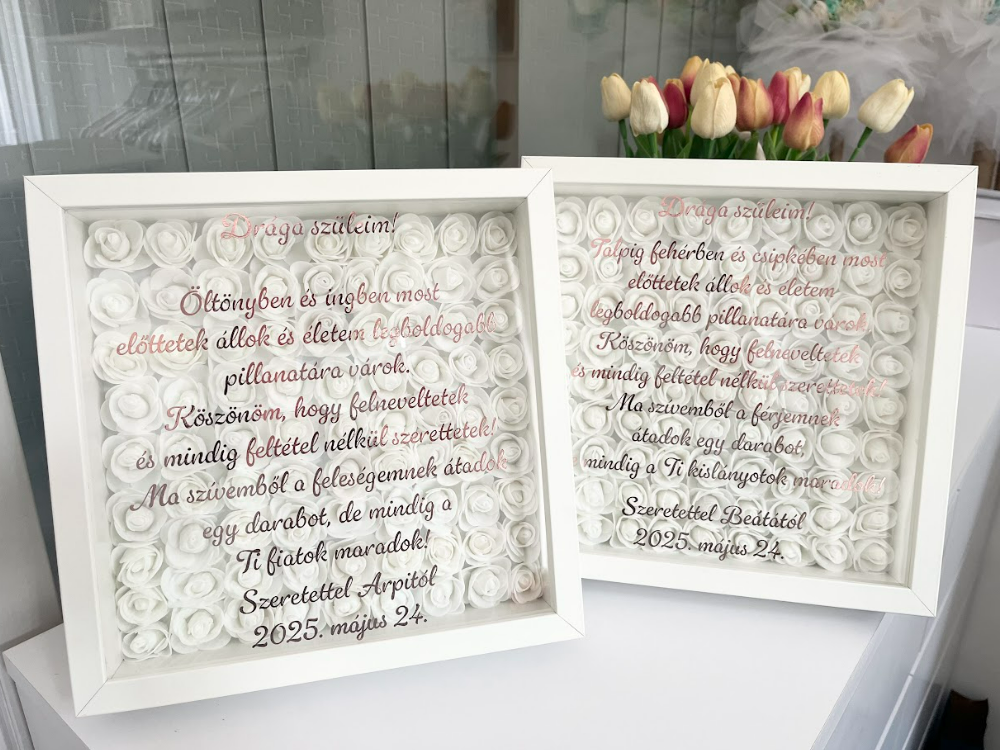 Drága szüleim!
Öltönyben és ingben most
előttetek állok és életem legboldogabb
pillanatára várok.
Köszönöm, hogy felneveltetek
és mindig feltétel nélkül szerettetek!
Ma szívemből a feleségemnek átadok
egy darabot, de mindig a
Ti fiatok maradok!
Szeretettel Arpitól
2025. május 24.
Drága szüleim!
Talpig fehérben és csipkében most
előttetek állok és életem
legboldogabb pillanatára várok
Köszönöm, hogy felneveltetek
és mindig feltétel nélkül szerettetek!
Ma szívemből a férjemnek
átadok egy darabot,
mindig a Ti kislányotok maradok!
Szeretettel Beátától
2025. május 24.